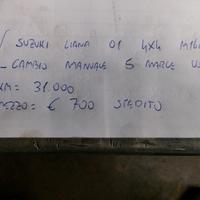 / SUZUKI LIANA 01 4X4
- CAMBIO MANUALE 5 MARCE
KM= 31.000
PREZZO= € 700 SPEDITO